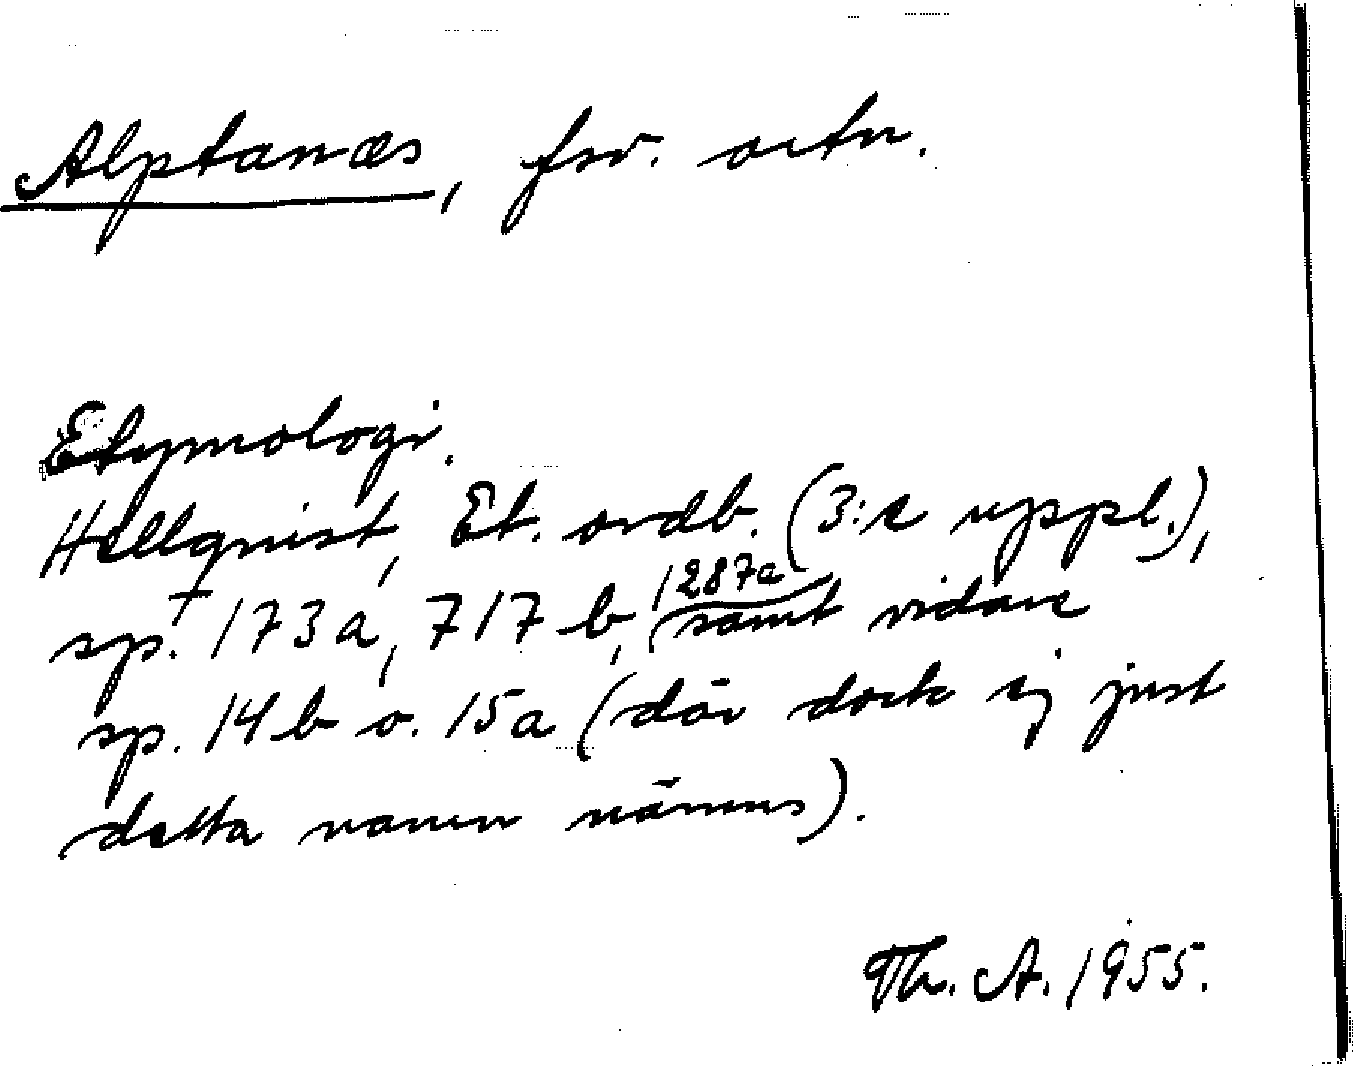 Alptanæs, fsv. ortn.
Etymologi.
Hellquist, Et. ordb. (3:e uppl.),
sp. 173a, 717 b, 1287a samt vidare
sp. 14b o. 15a (där dock ej just
detta namn nämns).
Th. A. 1955.